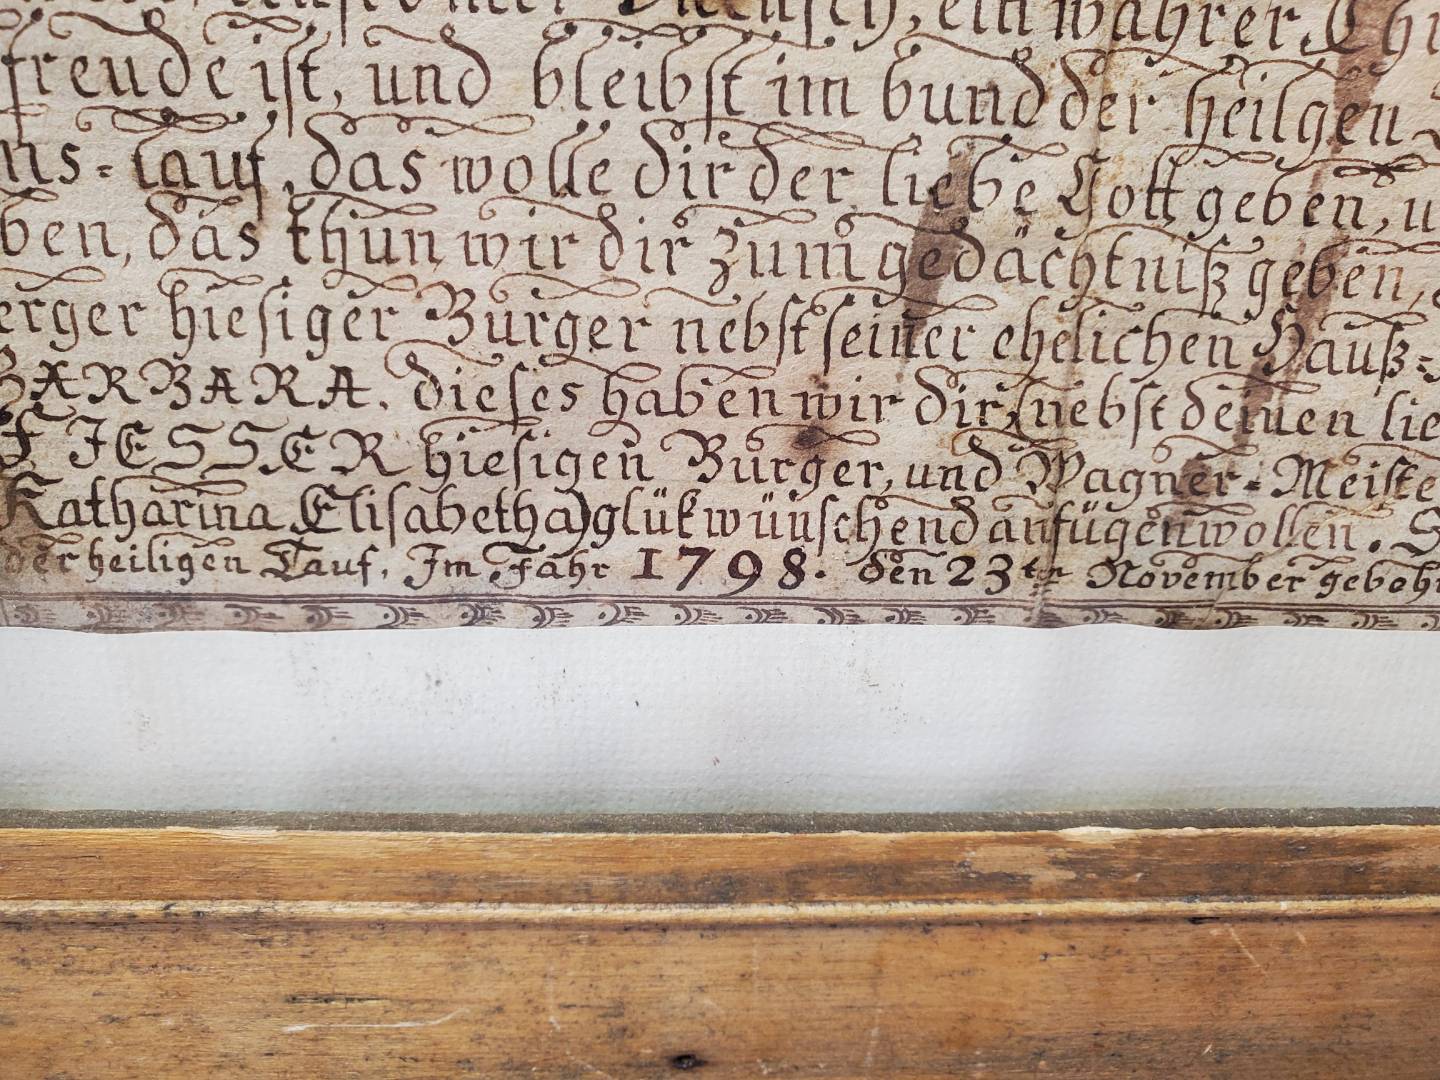 Mensch, ein wahrer Chri
freude ist, und bleibst im bund der heilgen
ns-lauf, das wolle dir der liebe Gott geben, u
ben, das thun wir dir zum gedächtniß geben,
erger hiesiger Burger nebst seiner ehelichen Hauß-
BARBARA. dieses haben wir dir, nebst deinen lie
JESSER hiesigen Burger, und Wagner-Meiste
Katharina Elisabetha) glükwünschend anfügen wollen. S
der heiligen Tauf, Im Jahr 1798. den 23ten November gebohr